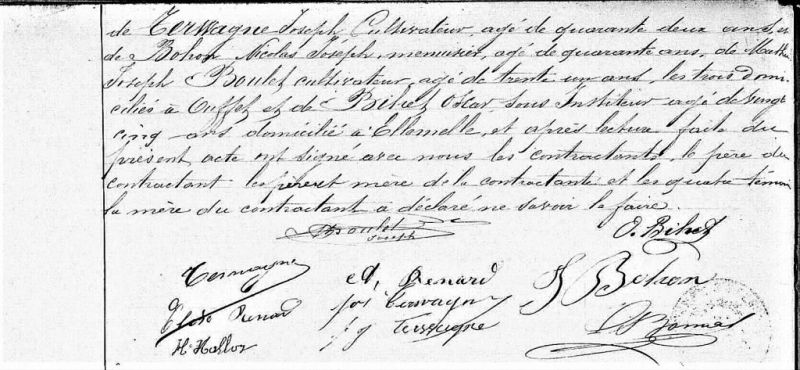 de Terwagne Joseph Cultivateur, agé de quarante deux ans, et
de Bohon Nicolas Joseph, menuisier, agé de quarante ans, de
Joseph Boulet cultivateur, agé de trente un ans, les trois domi
ciliés à Ouffet et de Bihet Oscar, sous Instituteur agé de vingt
cinq ans domicilié à Ellemelle, et après lecture faite du
présent acte ont signé avec nous les contractants, le père du
contractant les père et mère de la contractante et les quatre témoins
la mère du contractant a déclaré ne savoir le faire.
Boulet
Joseph
O. Bihet
Terwagne
A, Renard
J Bohon
Renard
jos Terwagne
H. Hallos
Terwagne